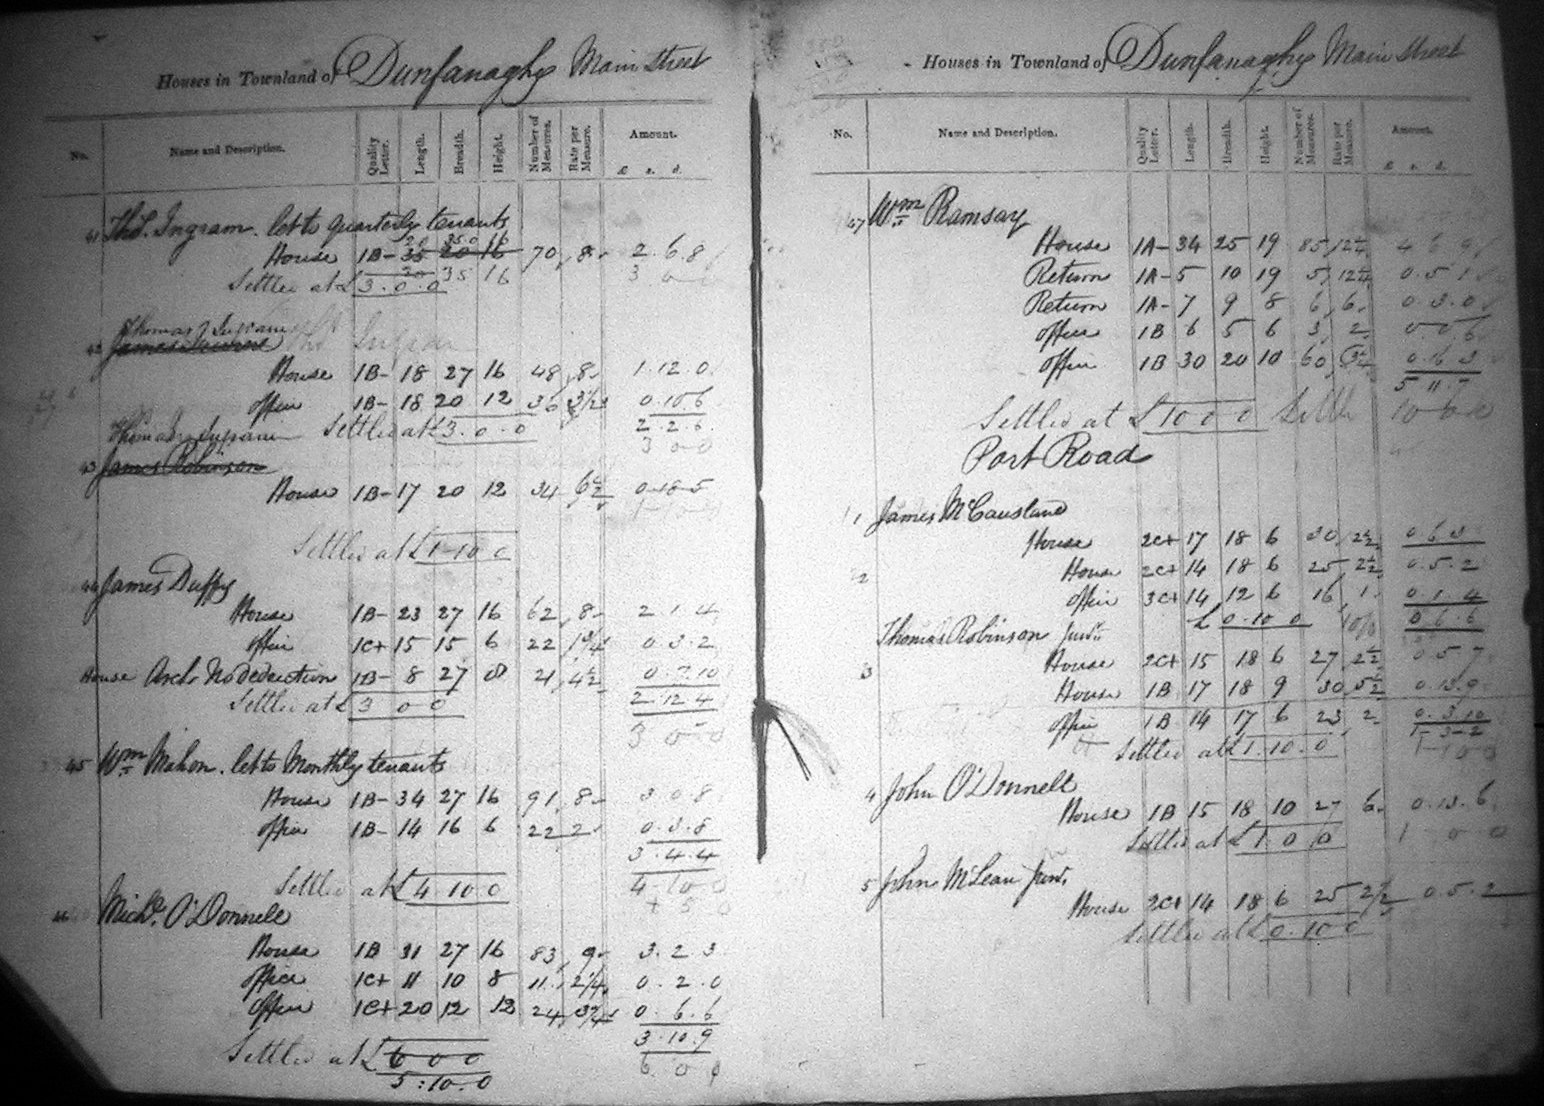 Houses in Townland of Dunfanaghy Main Street
No. Name and Description. Quality Letter. Length. Breadth. Height. Number of Measures. Rate per Measure. Amount.
£ s. d.
41 Thos. Ingram. let to quarterly tenants
20 35.0 16
House 1B- 35 20 16 70 8 2.6.8
Settled at £3.0.0 20 35 16 3 0 0
Thomas Ingram
42 James Thos Ingram
House 1B- 18 27 16 48 8 1.12.0
Office 1B- 18 20 12 36 3½ 0.10.6
Settled at £3.0.0 2.2.6
3 0 0
Thomas Ingram
43 James Robinson
House 1B- 17 20 12 34 6½ 0.18.5
1 10 0
Settled at £1.10.0
44 James Duffy
House 1B- 23 27 16 62 8 2.1.4
Office 1C+ 15 15 6 22 1¾ 0.3.2
House Arch. No deduction 1B- 8 27 8 21 4½ 0.7.10
Settled at £3 0 0 2.12.4
3 0 0
45 Wm Mahon. let to Monthly tenants
House 1B- 34 27 16 91 8 3.0.8
Office 1B- 14 16 6 22 2 0.3.8
3.4.4
Settled at £4 10 0 4 10 0
5 0
46 Michl. O'Donnell
House 1B 31 27 16 83 9 3.2.3
Office 1C+ 11 10 8 11 2¼ 0.2.0
Office 1C+ 20 12 12 24 3¼ 0.6.6
3.10.9
Settled at £6 0 0 6 0 0
5:10.0
Houses in Townland of Dunfanaghy Main Street
No. Name and Description. Quality Letter. Length. Breadth. Height. Number of Measures. Rate per Measure. Amount.
£ s. d.
47 Wm Ramsay
House 1A- 34 25 19 85 12¼ 4 6 9
Return 1A- 5 10 19 5 12¼ 0.5.1
Return 1A- 7 9 8 6 6 0.3.0
Office 1B 6 5 6 3 2 0 0 6
Office 1B 30 20 10 60 3¼ 0.16.3
5 11.7
Settled at £10 0 0 Settle 10 0 0
Port Road
1 James McCausland
House 2C+ 17 18 6 30 2½ 0 6 3
2 House 2C+ 14 18 6 25 2½ 0.5.2
Office 3C+ 14 12 6 16 1 0.1.4
£0.10 0 10/0 0.6.6
Thomas Robinson Junr.
3 House 2C+ 15 18 6 27 2½ 0 5 7
House 1B 17 18 9 30 5½ 0.13.9
Office 1B 14 17 6 23 2 0.3.10
1-3-2
Settled at £1.10.0 1-10 0
4 John O'Donnell
House 1B 15 18 10 27 6 0.13.6
Settled at £1 0 0 1 0 0
5 John McLean Junr.
House 2C+ 14 18 6 25 2½ 0.5.2
Settled at £0.10 0